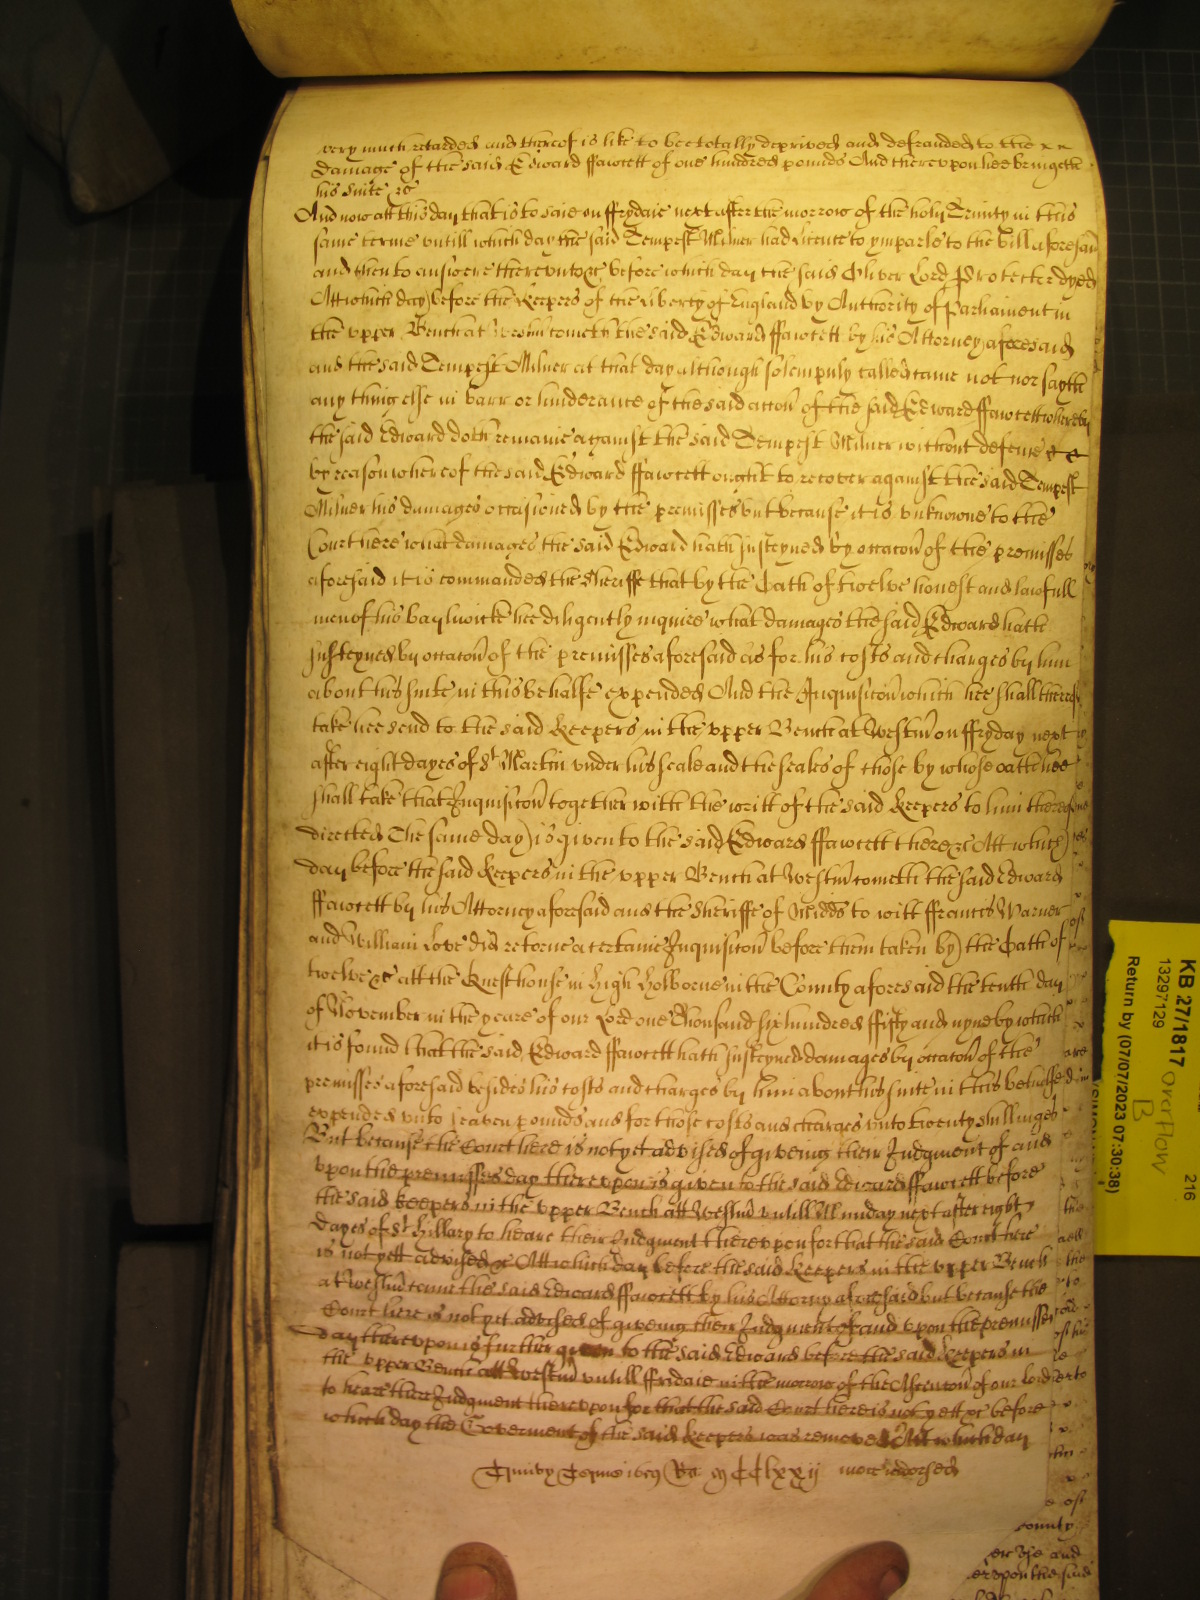 very much retarded and thereof is like to bee totally deprived and defrauded to the
damage of the said Edward ffawcett of one hundred pounds And thereupon hee bringeth
his suite &c
And now att this day that is to saie on ffrydaie next after the morrow of the holy Trinity in this
same terme untill which day the said Tempest Milner had licence to ymparle to the bill aforesaid
and then to answere thereunto &c before which day the said Oliver Lord Protector dyed
Att which day before the Keepers of the liberty of England by Authority of Parliament in
the upper Bench at Westm cometh the said Edward ffawcett by his Attorney aforesaid
and the said Tempest Milner at that day although solempnly called came not nor sayth
any thing else in barr or hinderance of the said accon of the said Edward ffawcett whereby
the said Edward doth remaine against the said Tempest Milner without defence
by reason whereof the said Edward ffawcett ought to recover against the said Tempest
Milner his damages occasioned by the premisses but because it is unknowne to the
Court here what damages the said Edward hath susteyned by occacon of the premisses
aforesaid it is commanded the Sheriffe that by the Oath of twelve honest and lawfull
men of his baylwicke hee diligently inquire what damages the said Edward hath
susteyned by occacon of the premisses aforesaid as for his costs and charges by him
about his suite in this behalfe expended And the Inquisicon which hee shall thereof
take hee send to the said Keepers in the upper Bench at Westm on ffryday next
after eight dayes of St Martin under his seale and the seales of those by whose oath hee
shall take that Inquisicon together with the writt of the said Keepers to him thereof
directed The same day is given to the said Edward ffawcett there &c Att which
day before the said Keepers in the upper Bench at Westm cometh the said Edward
ffawcett by his Attorney aforesaid and the Sheriffe of Midds to witt ffrancis Warner
and William Love did retorne a certaine Inquisicon before them taken by the Oath of
twelve &c att the Quest house in high Holborne in the County aforesaid the tenth day
of November in the yeare of our Lord one Thousand six hundred ffifty and nyne by which
it is found that the said Edward ffawcett hath susteyned damages by occacon of the
premisses aforesaid besides his costs and charges by him about his suite in this behalfe
expended unto seaven pounds and for those costs and charges unto twenty shillinges
But because the Court here is not yet advised of giveing their Judgment of and
upon the premisses day thereupon is given to the said Edward ffawcett before
the said Keepers in the upper Bench att Westm untill Munday next after eight
dayes of St Hillary to heare their Judgment thereupon for that the said Court here
is not yett advised &c Att which day before the said Keepers in the upper Bench
at Westm came the said Edward ffawcett by his Attorny aforesaid but because the
Court here is not yet advised of giveing their Judgment of and upon the premisses
day thereupon is further given to the said Edward before the said Keepers in
the upper Bench att Westm untill ffridaie in the morrow of the Ascencon of our Lord
to heare there Judgment thereupon for that the said Court here is not yett &c before
which day the Goverment of the said Keepers was removed Att which day
Trinity Terme 1659 Ro MCClxxij more indorsed
KB 27/1817 overflow
B
13297129
216
Return by (07/07/2023 07:30:38)
county